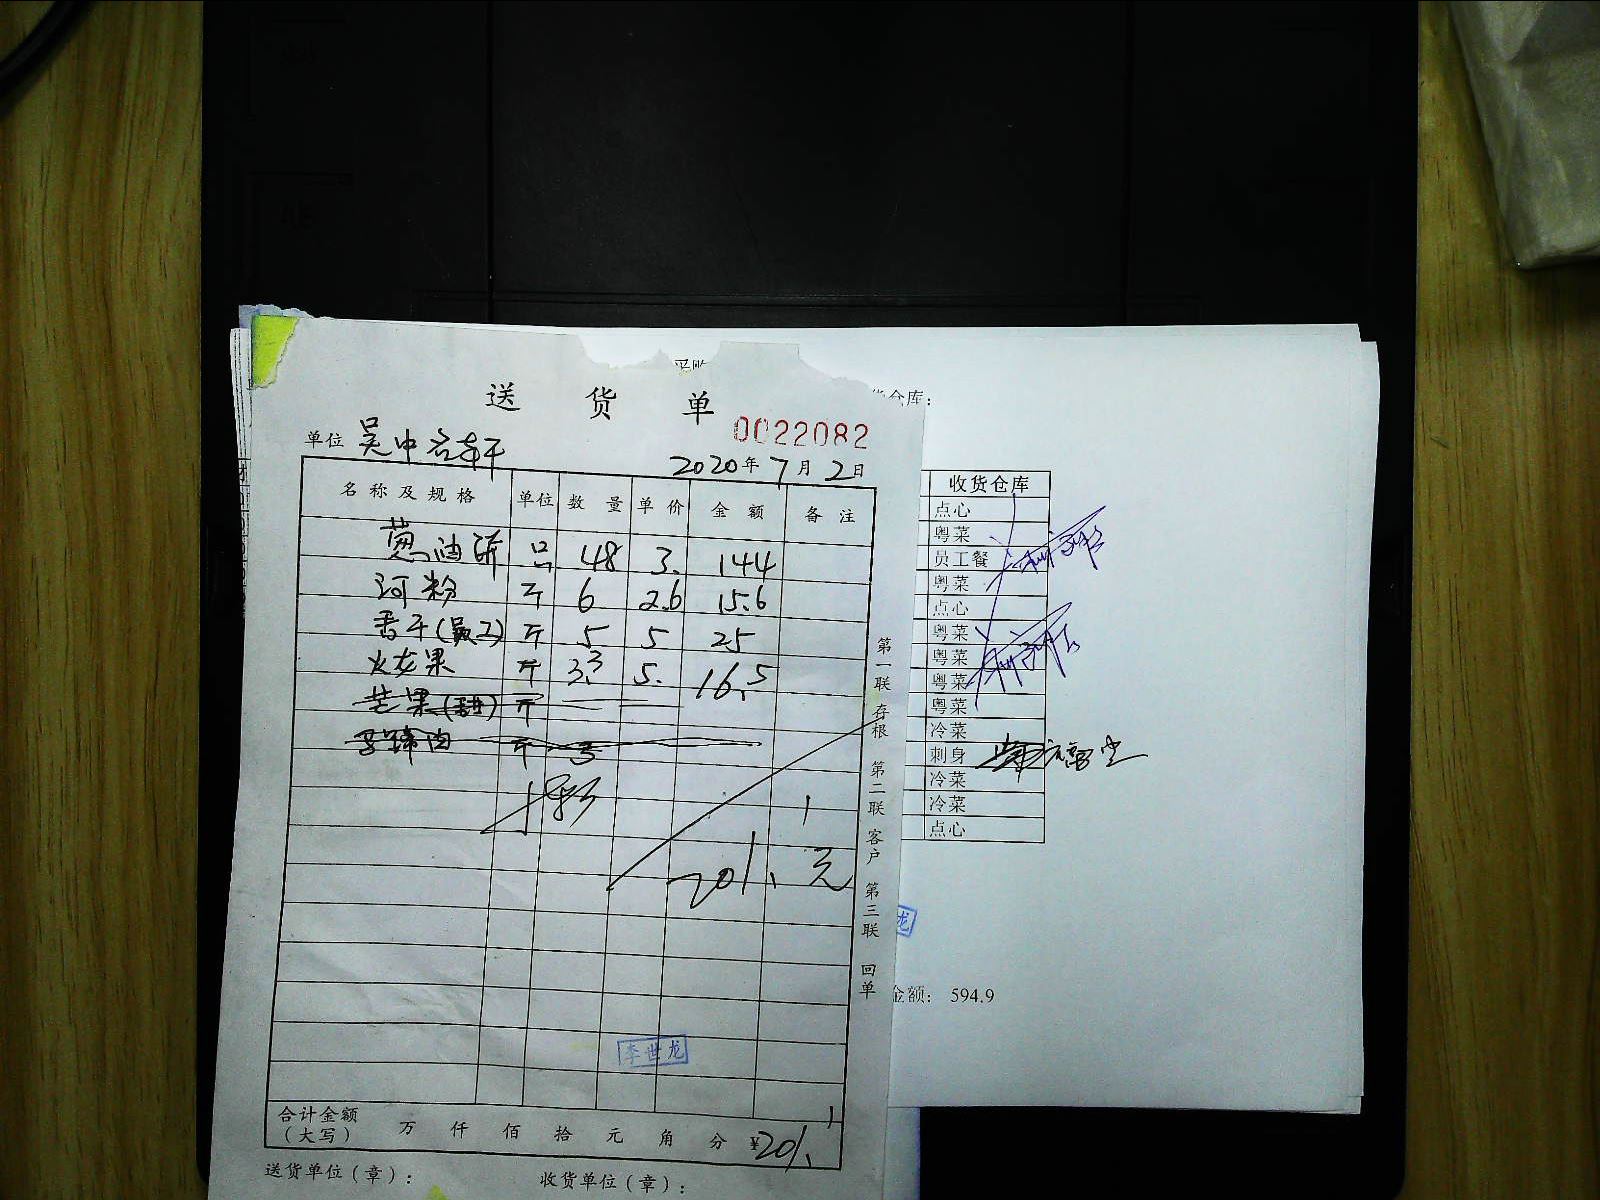 送货单
0022082
单位 吴中名轩
2020年7月2日
名称及规格 单位 数量 单价 金额 备注
葱油饼 只 48 3. 144
河粉 斤 6 2.6 15.6
香干(员工) 斤 5 5 25
火龙果 斤 3.3 5. 16.5
芒果 斤
马蹄肉 斤 5
201.元
第一联存根 第二联客户 第三联回单
李世龙
合计金额
(大写) 万 仟 佰 拾 元 角 分 ¥201.
送货单位(章): 收货单位(章):
采购
仓库:
收货仓库
点心
粤菜
员工餐
粤菜
点心
粤菜
粤菜
粤菜
粤菜
冷菜
刺身
冷菜
冷菜
点心
龙
金额: 594.9